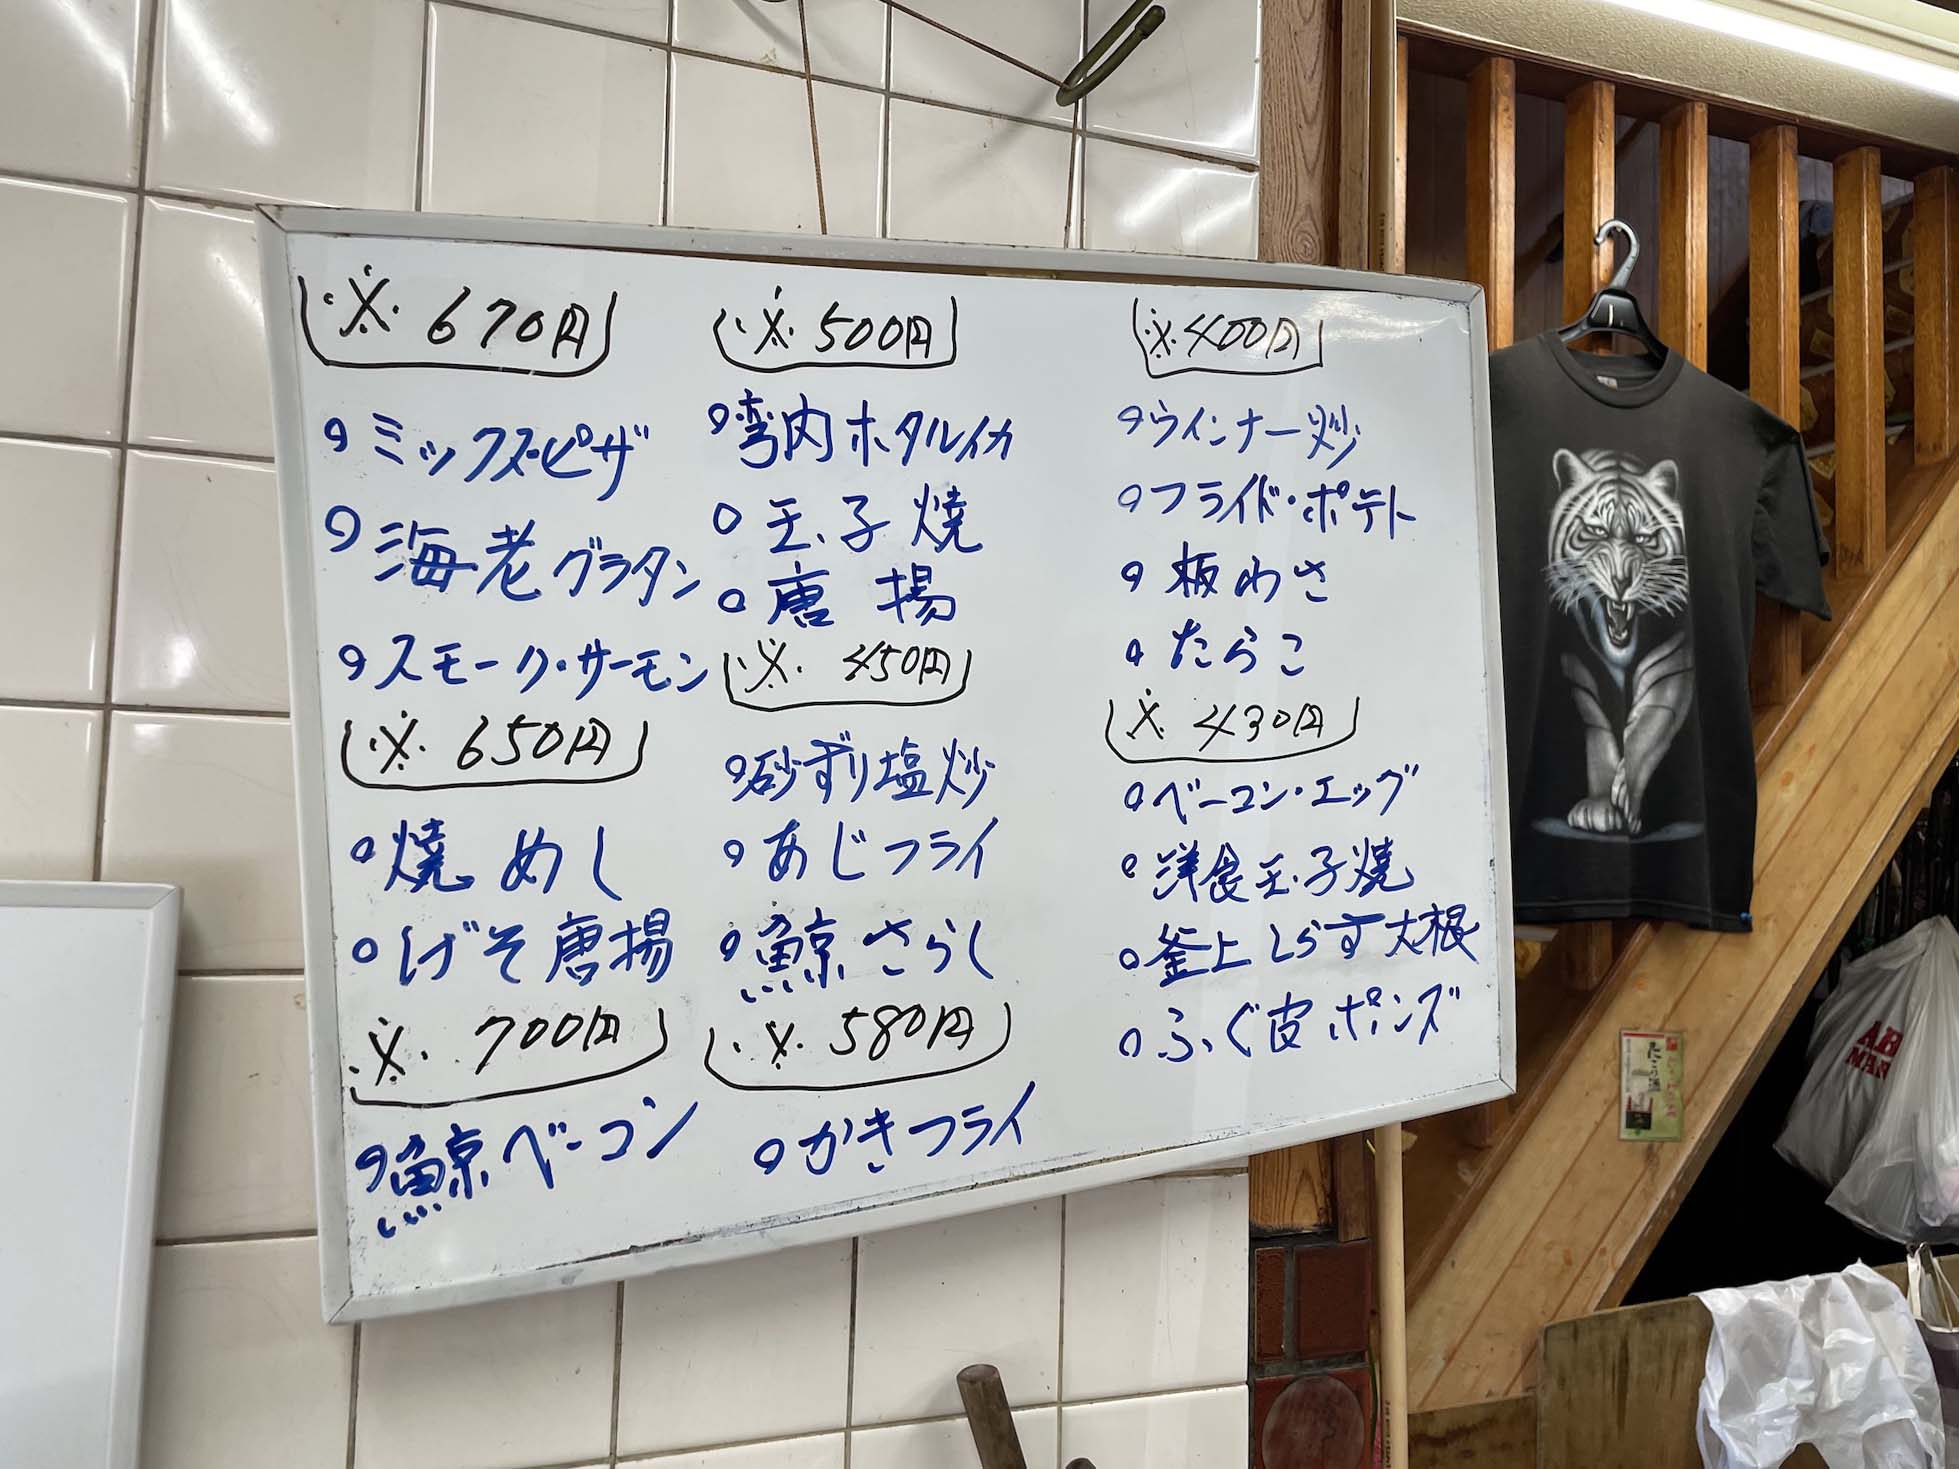 ※ 670円
○ミックスピザ
○海老グラタン
○スモーク・サーモン
※ 650円
○焼めし
○げそ唐揚
※ 700円
○鯨ベーコン
※ 500円
○湾内ホタルイカ
○玉子焼
○唐揚
※ 450円
○砂ずり塩炒
○あじフライ
○鯨さらし
※ 580円
○かきフライ
※400円
○ウインナー炒
○フライド・ポテト
○板わさ
○たらこ
※ 430円
○ベーコン・エッグ
○洋食玉子焼
○釜上しらす大根
○ふぐ皮ポンズ